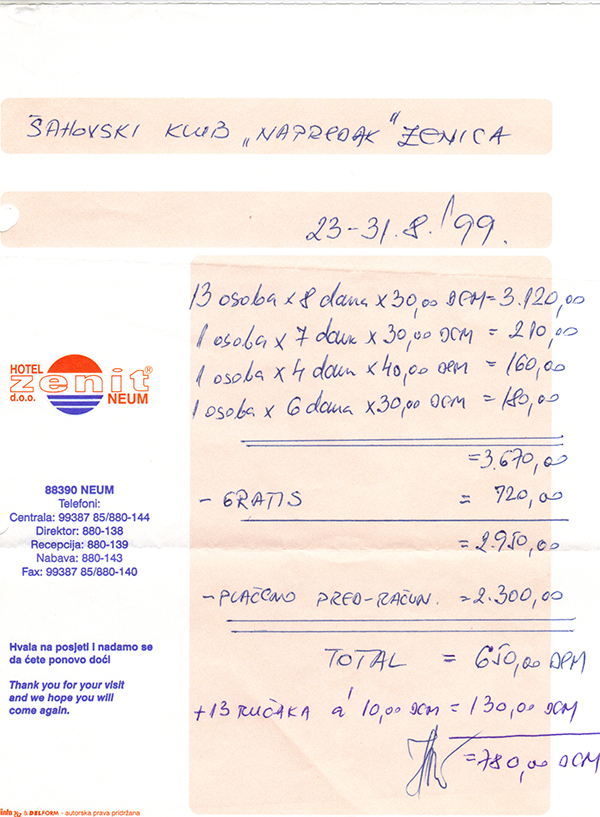 ŠAHOVSKI KLUB „NAPREDAK" ZENICA
23-31.8.'99.
13 osoba x 8 dana x 30,00 DEM = 3.120,00
1 osoba x 7 dana x 30,00 DEM = 210,00
1 osoba x 4 dana x 40,00 DEM = 160,00
1 osoba x 6 dana x 30,00 DEM = 180,00
= 3.670,00
- GRATIS = 720,00
= 2.950,00
- PLAĆENO PRED-RAČUN. = 2.300,00
TOTAL = 650,00 DEM
+ 13 RUČAKA a' 10,00 DEM = 130,00 DEM
= 780,00 DEM
HOTEL
zenit®
d.o.o. NEUM
88390 NEUM
Telefoni:
Centrala: 99387 85/880-144
Direktor: 880-138
Recepcija: 880-139
Nabava: 880-143
Fax: 99387 85/880-140
Hvala na posjeti i nadamo se
da ćete ponovo doći
Thank you for your visit
and we hope you will
come again.
& DELFORM - autorska prava pridržana